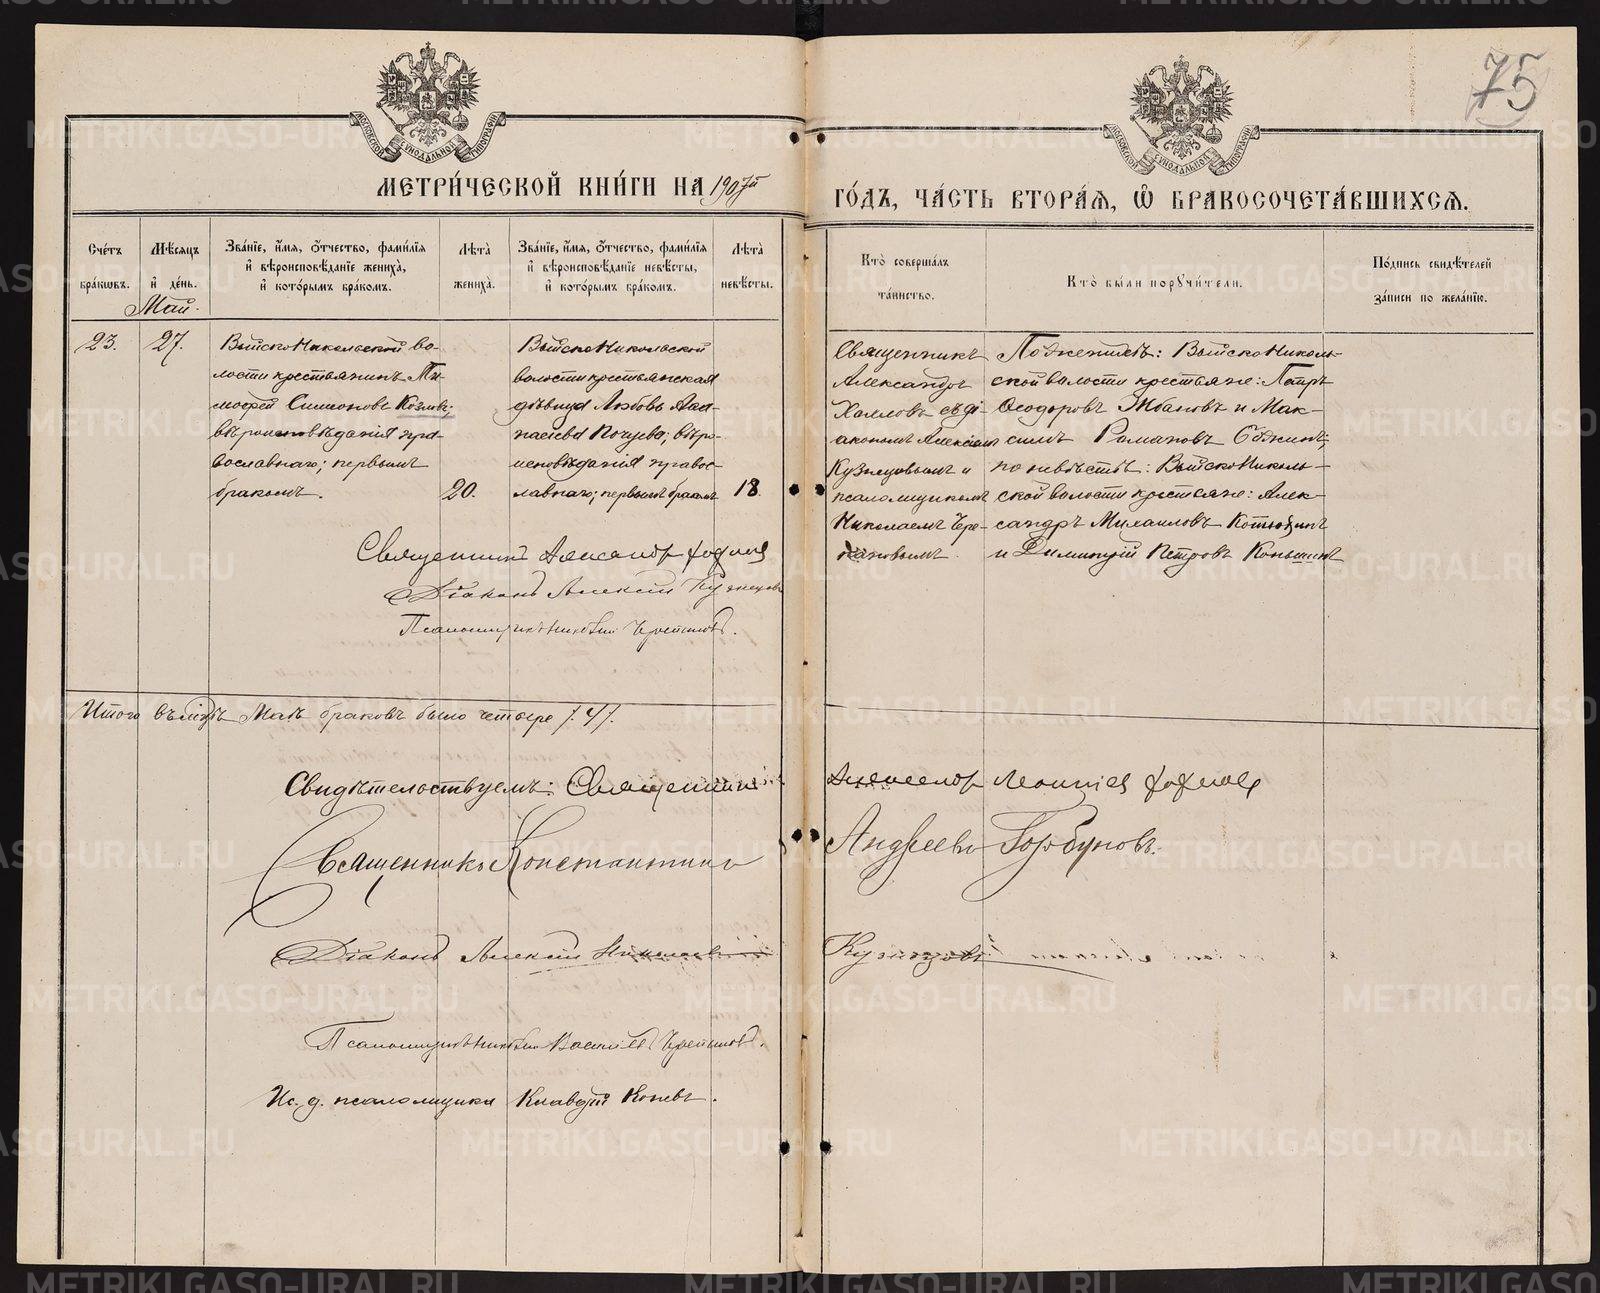 75
МОСКОВСКОЙ СѴНОДАЛЬНОЙ ТИПОГРАФІИ
МОСКОВСКОЙ СѴНОДАЛЬНОЙ ТИПОГРАФІИ
МЕТРИ́ЧЕСКОЙ КНИ́ГИ НА 1907й
ГО́ДЪ, ЧА́СТЬ ВТОРА́Ѧ, Ѽ БРАКОСОЧЕТА́ВШИХСѦ.
Сче́тъ бра́кωвъ.
Мѣ́сяцъ и҆ де́нь.
Зва́нїе, и҆́мя, ѻ҆́тчество, фами́лїя
и҆ вѣроисповѣ́данїе жениха̀,
и҆ кото́рымъ бра́комъ.
Лѣ́та̀ жениха̀.
Зва́нїе, и҆́мя, ѻ҆́тчество, фами́лїя
и҆ вѣроисповѣ́данїе невѣ́сты,
и҆ кото́рымъ бра́комъ.
Лѣ́та̀ невѣ́сты.
Кто̀ соверша́лъ та́инство.
Кто̀ бы́ли порꙋчи́тели.
По́дпись свидѣ́телей за́писи по жела́нїю.
Май.
23.
27.
Выйско Никольской во-
лости крестьянинъ Ти-
мофей Симоновъ Козловъ;
вѣроисповѣданія пра-
вославнаго; первымъ
бракомъ.
20.
Выйско Никольской
волости крестьянская
дѣвица Любовь Аѳа-
насіева Почуева; вѣро-
исповѣданія правос-
лавнаго; первымъ бракомъ
18.
Священникъ
Александръ
Хохловъ съ ді-
акономъ Алексіемъ
Кузнецовымъ и
псаломщикомъ
Николаемъ Чере-
пановымъ.
По женихѣ: Выйско Николь-
ской волости крестьяне: Петръ
Ѳеодоровъ Жбановъ и Мак-
симъ Романовъ
по невѣстѣ: Выйско Николь-
ской волости крестьяне: Алек-
сандръ Михаиловъ
и Димитрій Петровъ Коньшинъ
Священникъ Александръ Хохловъ
Діаконъ Алексій Кузнецовъ
Псаломщикъ Николай Черепановъ.
Итого въ мѣсяцѣ Маѣ браковъ было четыре /4/.
Свидѣтельствуемъ: Священникъ Александръ Леонтіевъ Хохловъ
Священникъ Константинъ Андреевъ Горбуновъ.
Діаконъ Алексій Николаевъ Кузнецовъ
Псаломщикъ Николай Васильевъ Черепановъ.
Ис. д. псаломщика Клавдій Коневъ.
METRIKI.GASO-URAL.RU